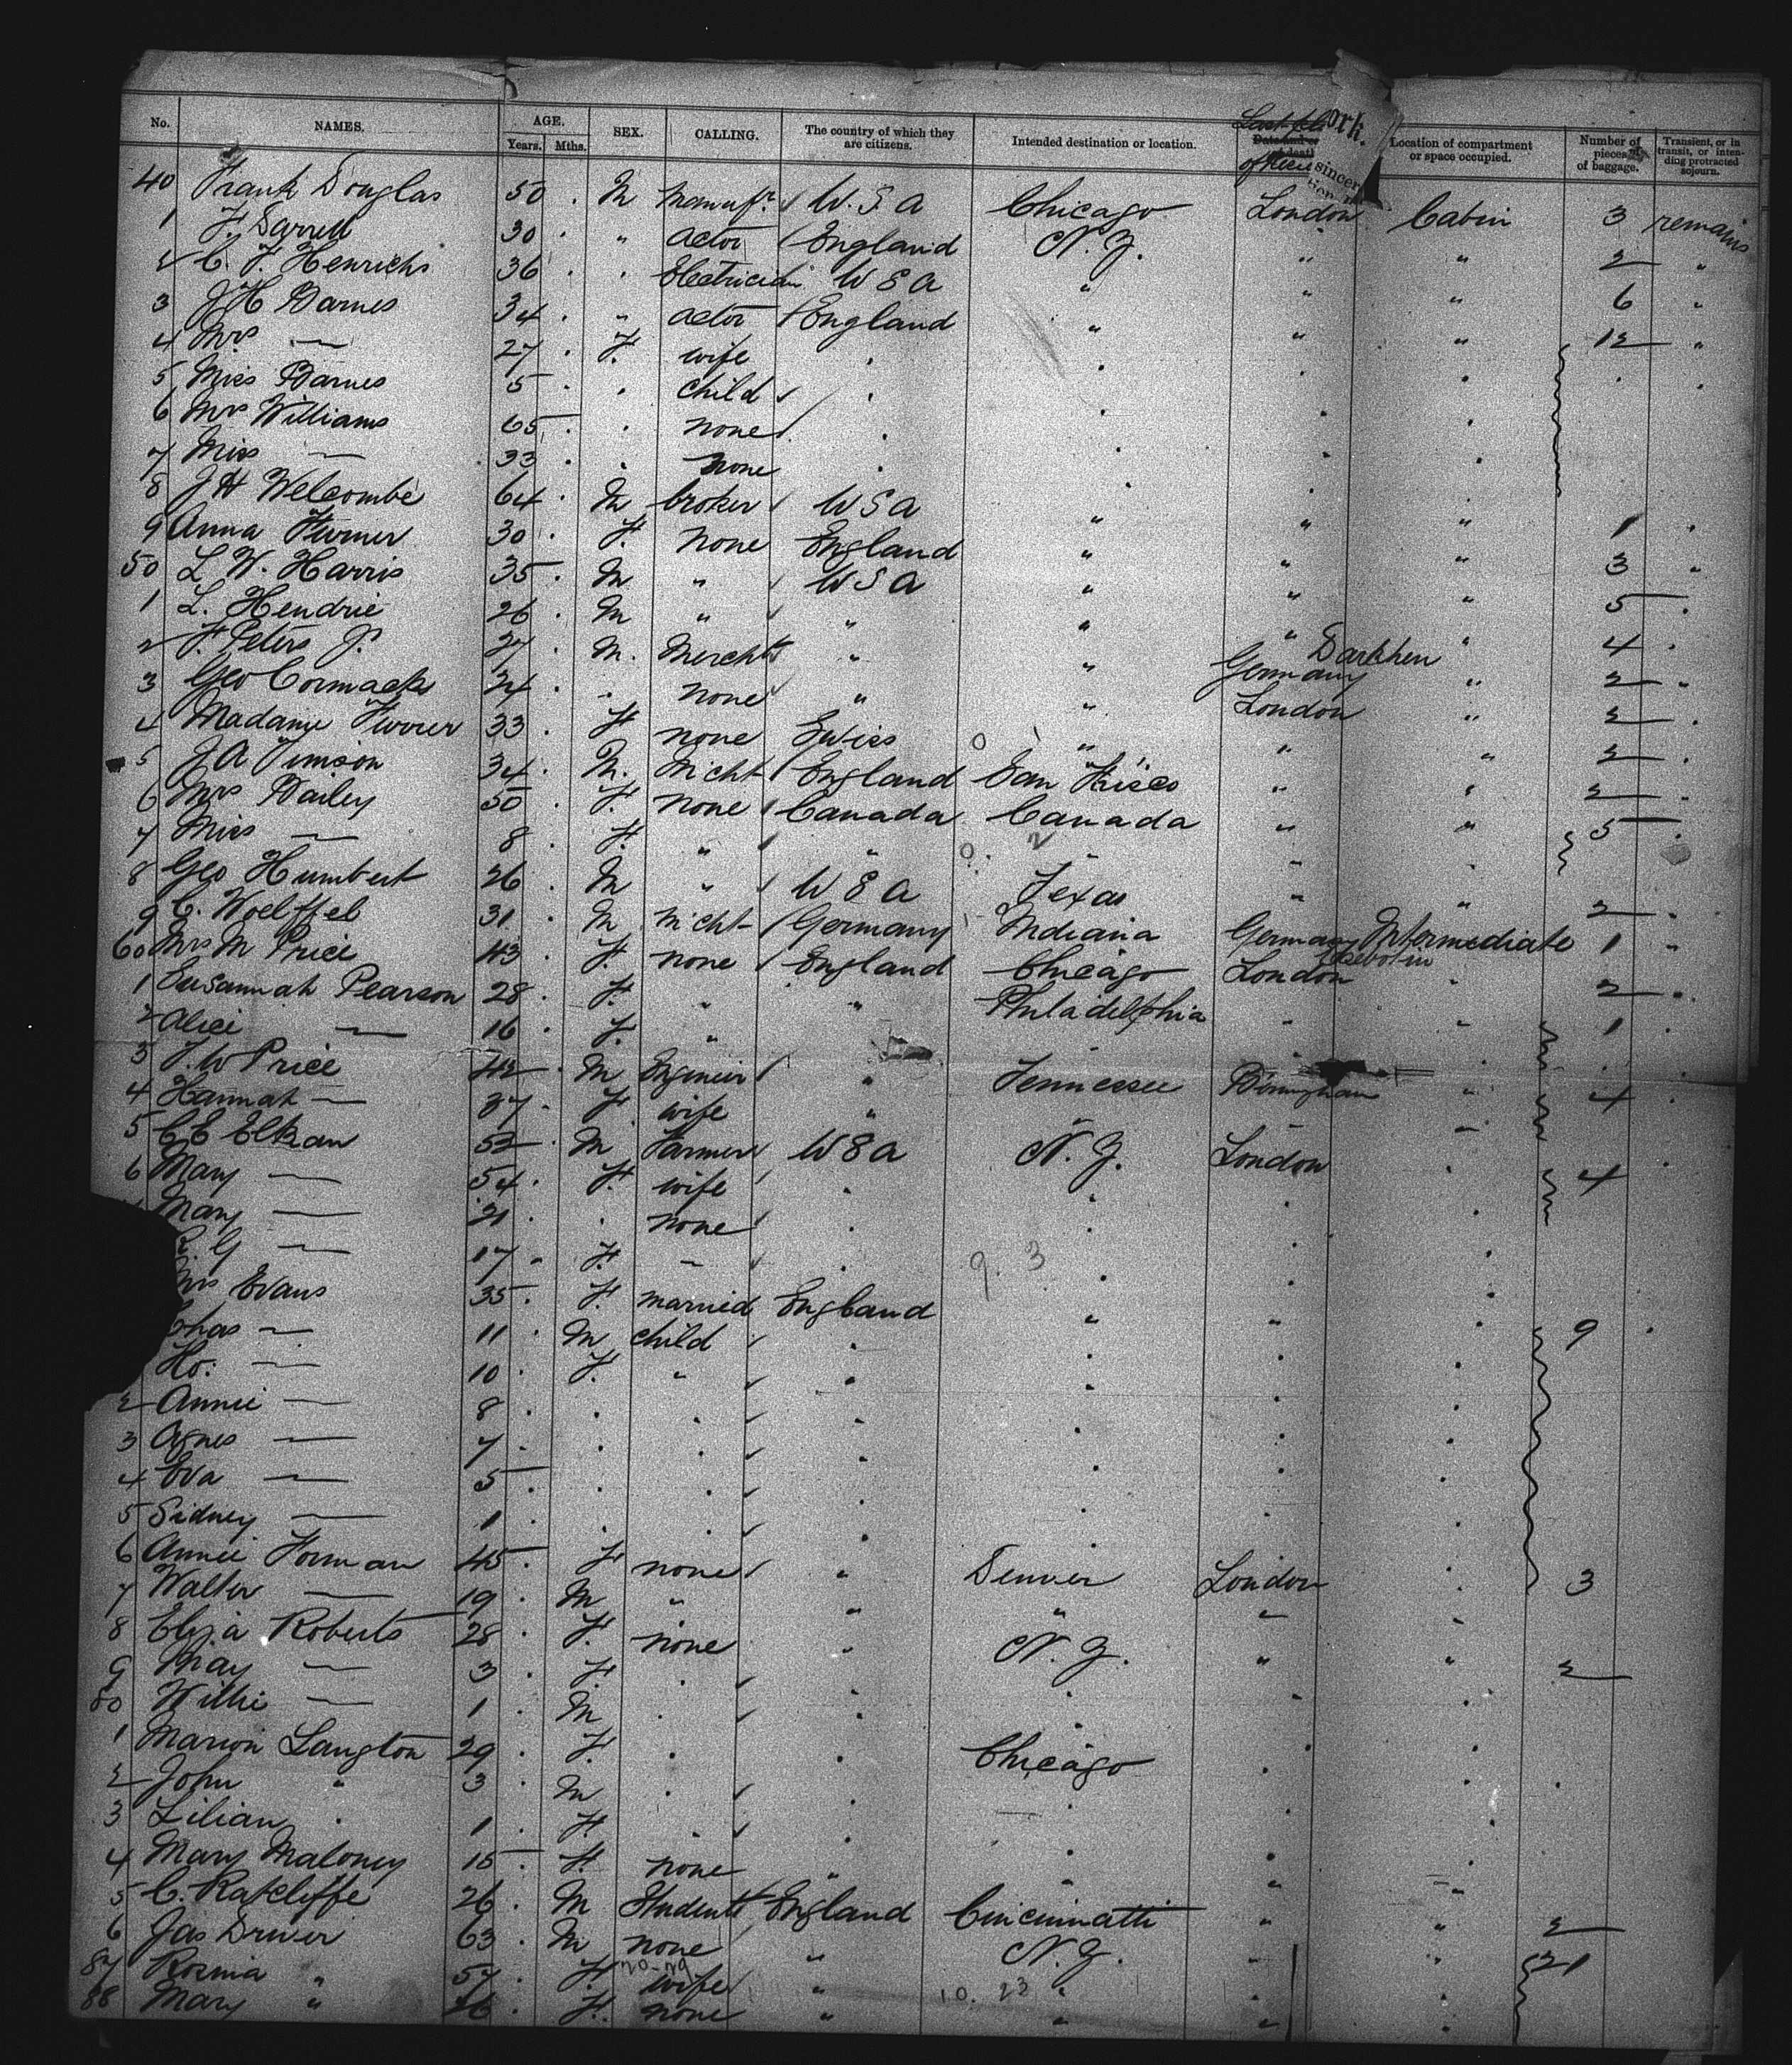 No. NAMES. AGE. Years. Mths. SEX. CALLING. The country of which they are citizens. Intended destination or location. Location of compartment or space occupied. Number of pieces of baggage. Transient, or in transit, or intending protracted sojourn.
40 Frank Douglas 50 . M Manufr. U.S.A Chicago London Cabin 3 remains
1 F. Darrell 30 . " actor England N.Y. " " 2 "
2 C. F. Henrichs 36 . " Electrician U S A " " " 6 "
3 J H Barnes 34 . " actor England " " " 12 "
4 Mrs — 27 . F. wife " " " " " "
5 Miss Barnes 5 . " child " " " "
6 Mrs Williams 65 . " none " " " "
7 Miss — 33 . " none " " " "
8 J H Welcombe 64 . M broker U S A " " " 1 "
9 Anna 30 . F. none England " " " 3 "
50 L W. Harris 35 . M " U S A " " " 5 "
1 L. Hendrie 26 . M " " " " " 4 .
2 F. Peters Jr. 27 . M. Mercht " " Germany " 2 "
3 Geo Cormacks 24 . " none " " London " 2 .
4 Madame 33 . F none Swiss " " " 2 .
5 J A Timson 34 . M. Mcht England San Frisco " " 2 .
6 Mrs Bailey 50 . F. none Canada Canada " " 5 .
7 Miss — 8 . F. " " " " "
8 Geo Humbert 26 . M " U S A Texas " " 2 .
9 C. Woelffel 31 . M Mcht Germany Indiana Germany Intermediate 1 "
60 Mrs M Price 43 . F. none England Chicago London " 2 "
1 Susannah Pearson 28 . F. " " Philadelphia " " 1 .
2 Alice — 16 . F. " " " " "
3 J. W Price 42 . M Engineer " Tennessee Birmingham " 4 .
4 Hannah — 37 . F wife " " " "
5 C E Elkan 52 . M Farmer U S A N.Y. London " 4 .
6 Mary — 54 . F. wife " " " "
Mary — 21 . " none " " " "
G — 17 . F. " " 9. 3 " " "
Mrs Evans 35 . F. married England " " " 9 .
Chas — 11 . M child " " " "
— 10 . F. " " " " "
2 Annie — 8 . " " " " " "
3 Agnes — 7 . " " " " " "
4 Eva — 5 . " " " " " "
5 Sidney — 1 . " " " " " "
6 Annie Forman 45 . F none " Denver London " 3
7 Walter — 19 . M " " " " "
8 Eliza Roberts 28 . F. none " N.Y. " " 2
9 May — 3 . F. " " " " "
80 Willie — 1 . M " " " " "
1 Marion Langton 29 . F. " " Chicago " " .
2 John " 3 . M " " " " "
3 Lilian " 1 . F. " " " " "
4 Mary Maloney 15 . F. none " " " "
5 C. Ratcliffe 26 . M Student England Cincinnatti " " 2
6 Jas Driver 63 . M none " N.Y. " " 21
87 Rosina " 57 . F. 20-29 wife " 10. 23 " " "
88 Mary " 26 . F. none " " " "